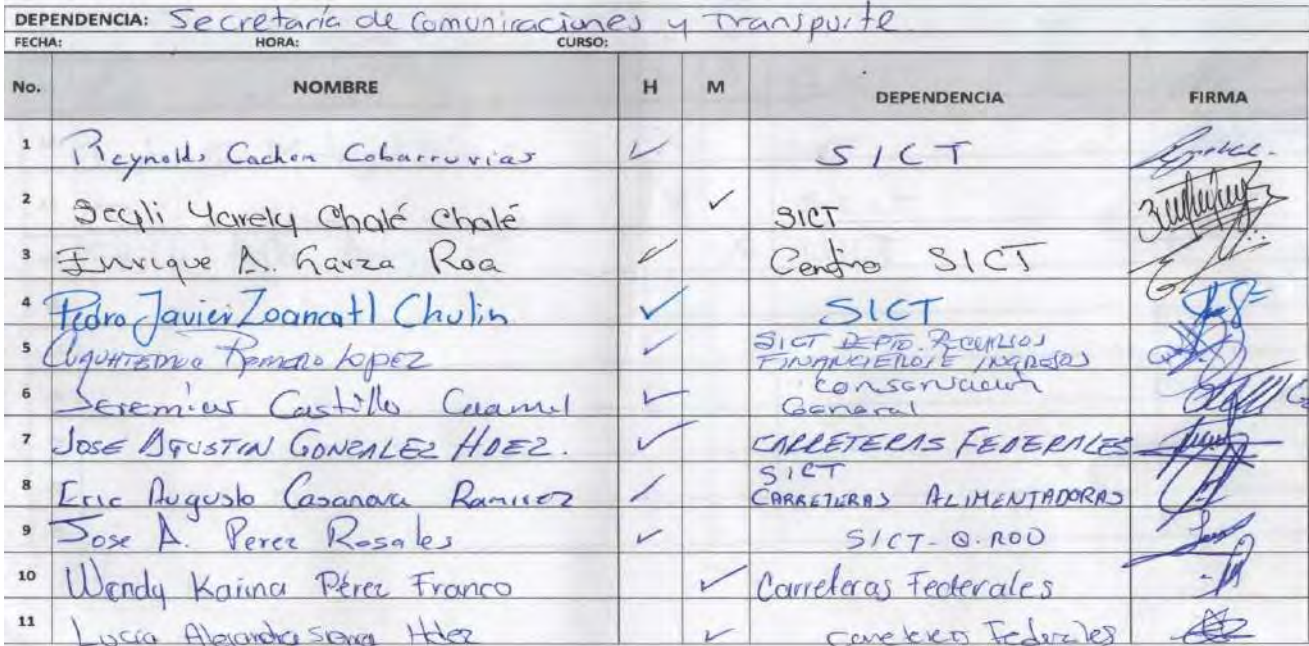 DEPENDENCIA: Secretaría de Comunicaciones y Transporte
FECHA: HORA: CURSO:
No. NOMBRE H M DEPENDENCIA FIRMA
1 Reynolds Cachon Cobarruvias ✓ SICT
2 Yarely Chalé Chalé ✓ SICT
3 Enrique A. Garza Roa ✓ Centro SICT
4 Pedro Javier Zoancatl Chulin ✓ SICT
5 Romero Lopez ✓ SICT DEPTO. RECURSOS
FINANCIEROS E INGRESOS
6 Jeremias Castillo Caamul ✓ Conservacion
General
7 JOSE AGUSTIN GONZALEZ HDEZ. ✓ CARRETERAS FEDERALES
8 Eric Augusto Casanova Ramirez ✓ SICT
CARRETERAS ALIMENTADORAS
9 Jose A. Perez Rosales ✓ SICT-Q.ROO
10 Wendy Karina Pérez Franco ✓ Carreteras Federales
11 Lucía Alejandra Hdez ✓ Carreteras Federales